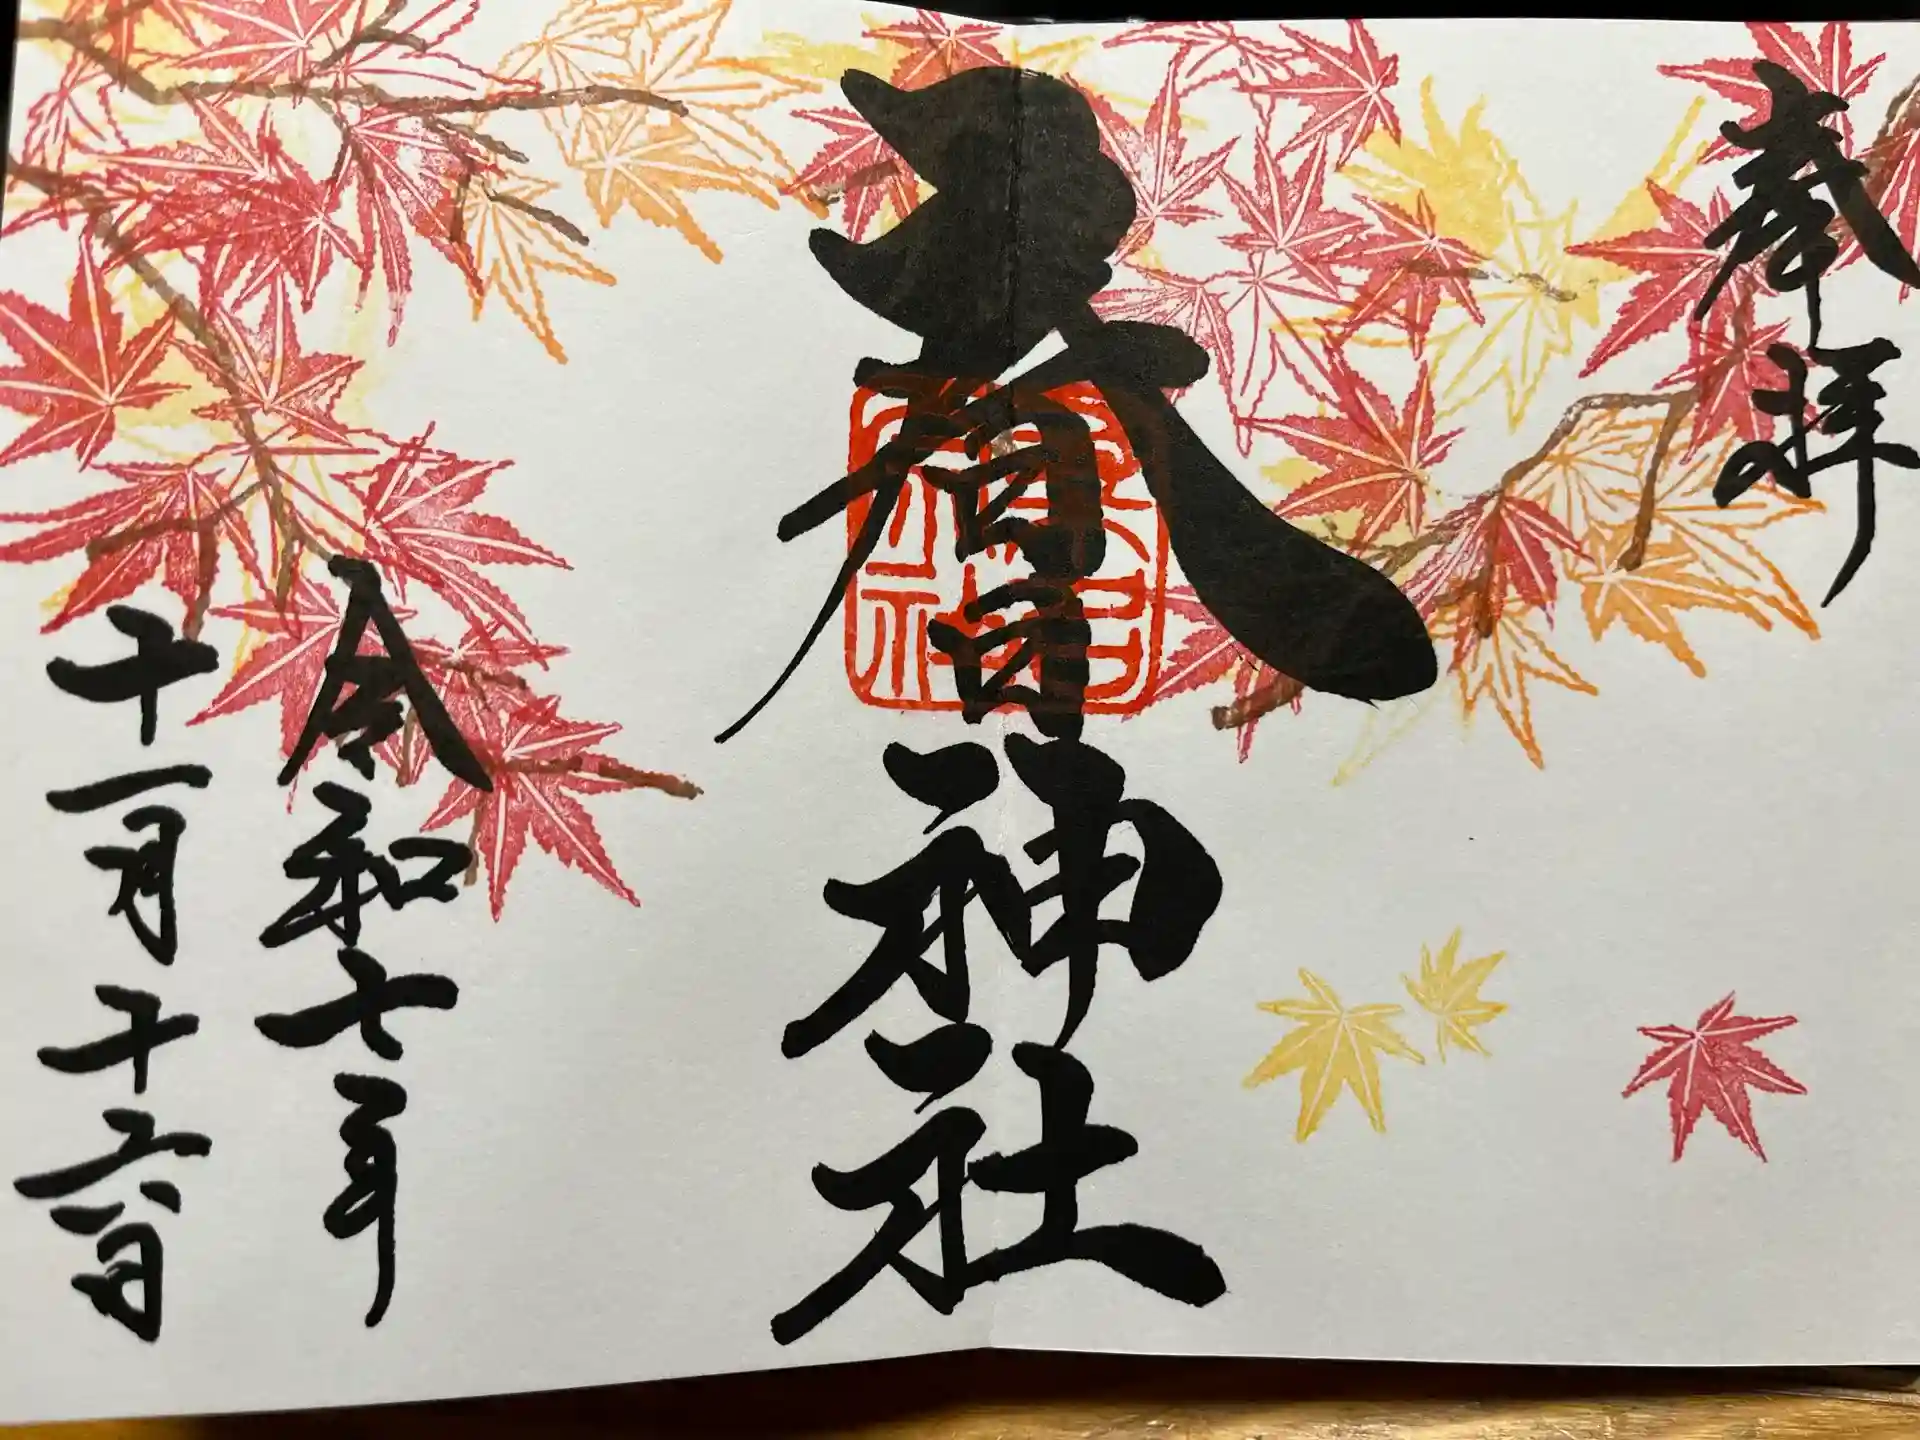 奉拝
春日神社
令和七年
十一月十六日